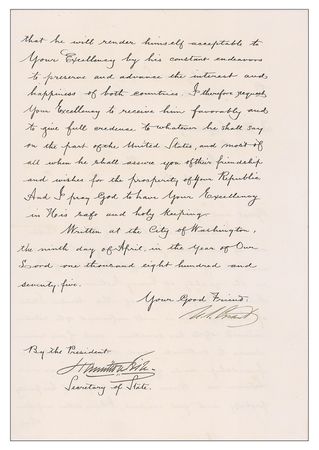 that he will render himself acceptable to
Your Excellency by his constant endeavors
to preserve and advance the interest and
happiness of both countries. I therefore request
Your Excellency to receive him favorably and
to give full credence to whatever he shall say
on the part of the United States, and most of
all when he shall assure you of their friendship
and wishes for the prosperity of Your Republic
And I pray God to have Your Excellency
in His safe and holy keeping.
Written at the City of Washington,
the ninth day of April, in the Year of Our
Lord one thousand eight hundred and
seventy-five.
Your Good Friend
U. S. Grant
By the President
Hamilton Fish
Secretary of State.